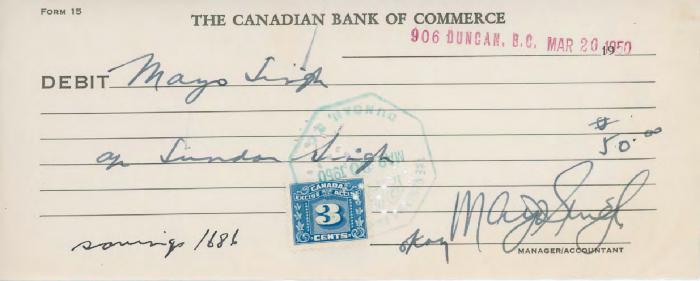 FORM 15
THE CANADIAN BANK OF COMMERCE
906 DUNCAN, B.C. MAR 20 1950
19
DEBIT Mayo Singh
a/c Sundar Singh $50.00
CANADA
EXCISE
3
CENTS
savings 1686
okay Mayo Singh
MANAGER/ACCOUNTANT